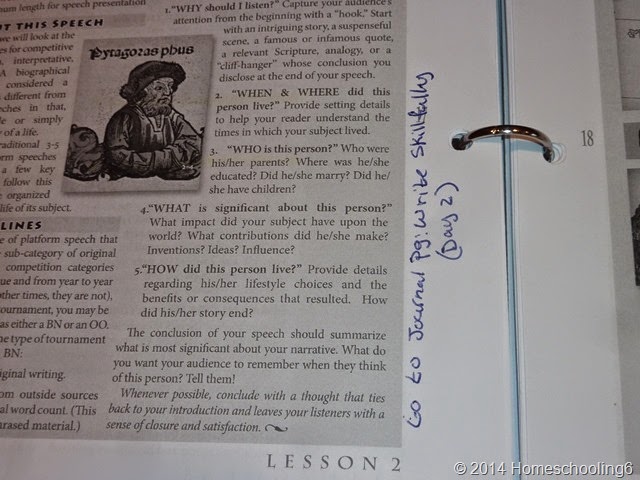 num length for speech presentation
UT THIS SPEECH
we will look at the
es for competitive
interpretative,
A biographical
considered a
different from
eches in that,
le or simply
of a life.
raditional 3-5
orm speeches
a few key
follow this
organized
life of its subject.
LINES
e of platform speech that
sub-category of original
competition categories
ue and from year to year
other times, they are not),
tournament, you may be
as either a BN or an OO.
he type of tournament
BN:
iginal writing.
om outside sources
al word count. (This
rased material.)
Pytagoras phus
1. "WHY should I listen?" Capture your audience's
attention from the beginning with a "hook." Start
with an intriguing story, a suspenseful
scene, a famous or infamous quote,
a relevant Scripture, analogy, or a
"cliff-hanger" whose conclusion you
disclose at the end of your speech.
2. "WHEN & WHERE did this
person live?" Provide setting details
to help your reader understand the
times in which your subject lived.
3. "WHO is this person?" Who were
his/her parents? Where was he/she
educated? Did he/she marry? Did he/
she have children?
4. "WHAT is significant about this person?"
What impact did your subject have upon the
world? What contributions did he/she make?
Inventions? Ideas? Influence?
5. "HOW did this person live?" Provide details
regarding his/her lifestyle choices and the
benefits or consequences that resulted. How
did his/her story end?
The conclusion of your speech should summarize
what is most significant about your narrative. What do
you want your audience to remember when they think
of this person? Tell them!
Whenever possible, conclude with a thought that ties
back to your introduction and leaves your listeners with a
sense of closure and satisfaction.
LESSON 2
Go to Journal Pg: Write Skillfully
(Day 2)
18
© 2014 Homeschooling6